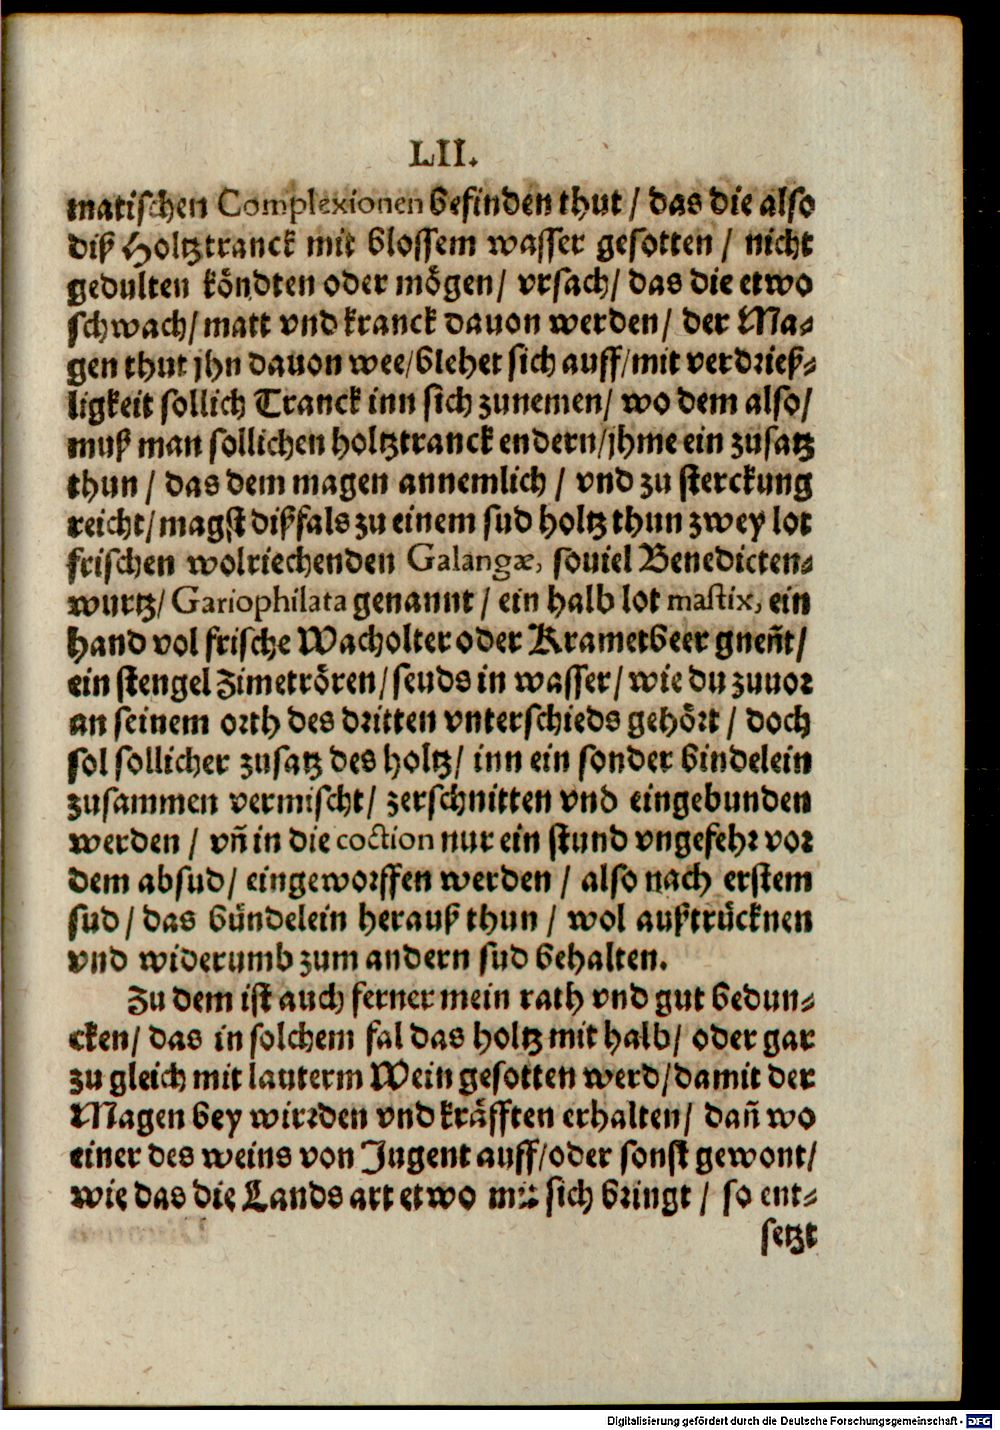 LII.
matischen Complexionen befinden thut / das die also
diß Holtztranck mit blossem wasser gesotten / nicht
gedulten köndten oder mögen / vrsach / das die etwo
schwach / matt vnd kranck dauon werden / der Ma⸗
gen thut jhn dauon wee / blehet sich auff / mit verdrieß⸗
ligkeit sollich Tranck inn sich zunemen / wo dem also /
muß man sollichen holtztranck endern / jhme ein zusatz
thun / das dem magen annemlich / vnd zu sterckung
reicht / magst dißfals zu einem sud holtz thun zwey lot
frischen wolriechenden Galangæ, souiel Benedicten⸗
wurtz / Gariophilata genannt / ein halb lot mastix, ein
hand vol frische Wacholter oder Krametbeer gneñt /
ein stengel Zimetrören / seuds in wasser / wie du zuuor
an seinem orth des dritten vnterschieds gehört / doch
sol sollicher zusatz des holtz / inn ein sonder bindelein
zusammen vermischt / zerschnitten vnd eingebunden
werden / vñ in die coction nur ein stund vngefehr vor
dem absud / eingeworffen werden / also nach erstem
sud / das bündelein herauß thun / wol außtrücknen
vnd widerumb zum andern sud behalten.
Zu dem ist auch ferner mein rath vnd gut bedun⸗
cken / das in solchem fal das holtz mit halb / oder gar
zu gleich mit lauterm Wein gesotten werd / damit der
Magen bey wirrden vnd kräfften erhalten / dañ wo
einer des weins von Jugent auff / oder sonst gewont /
wie das die Lands art etwo mit sich bringt / so ent⸗
setzt
Digitalisierung gefördert durch die Deutsche Forschungsgemeinschaft - DFG